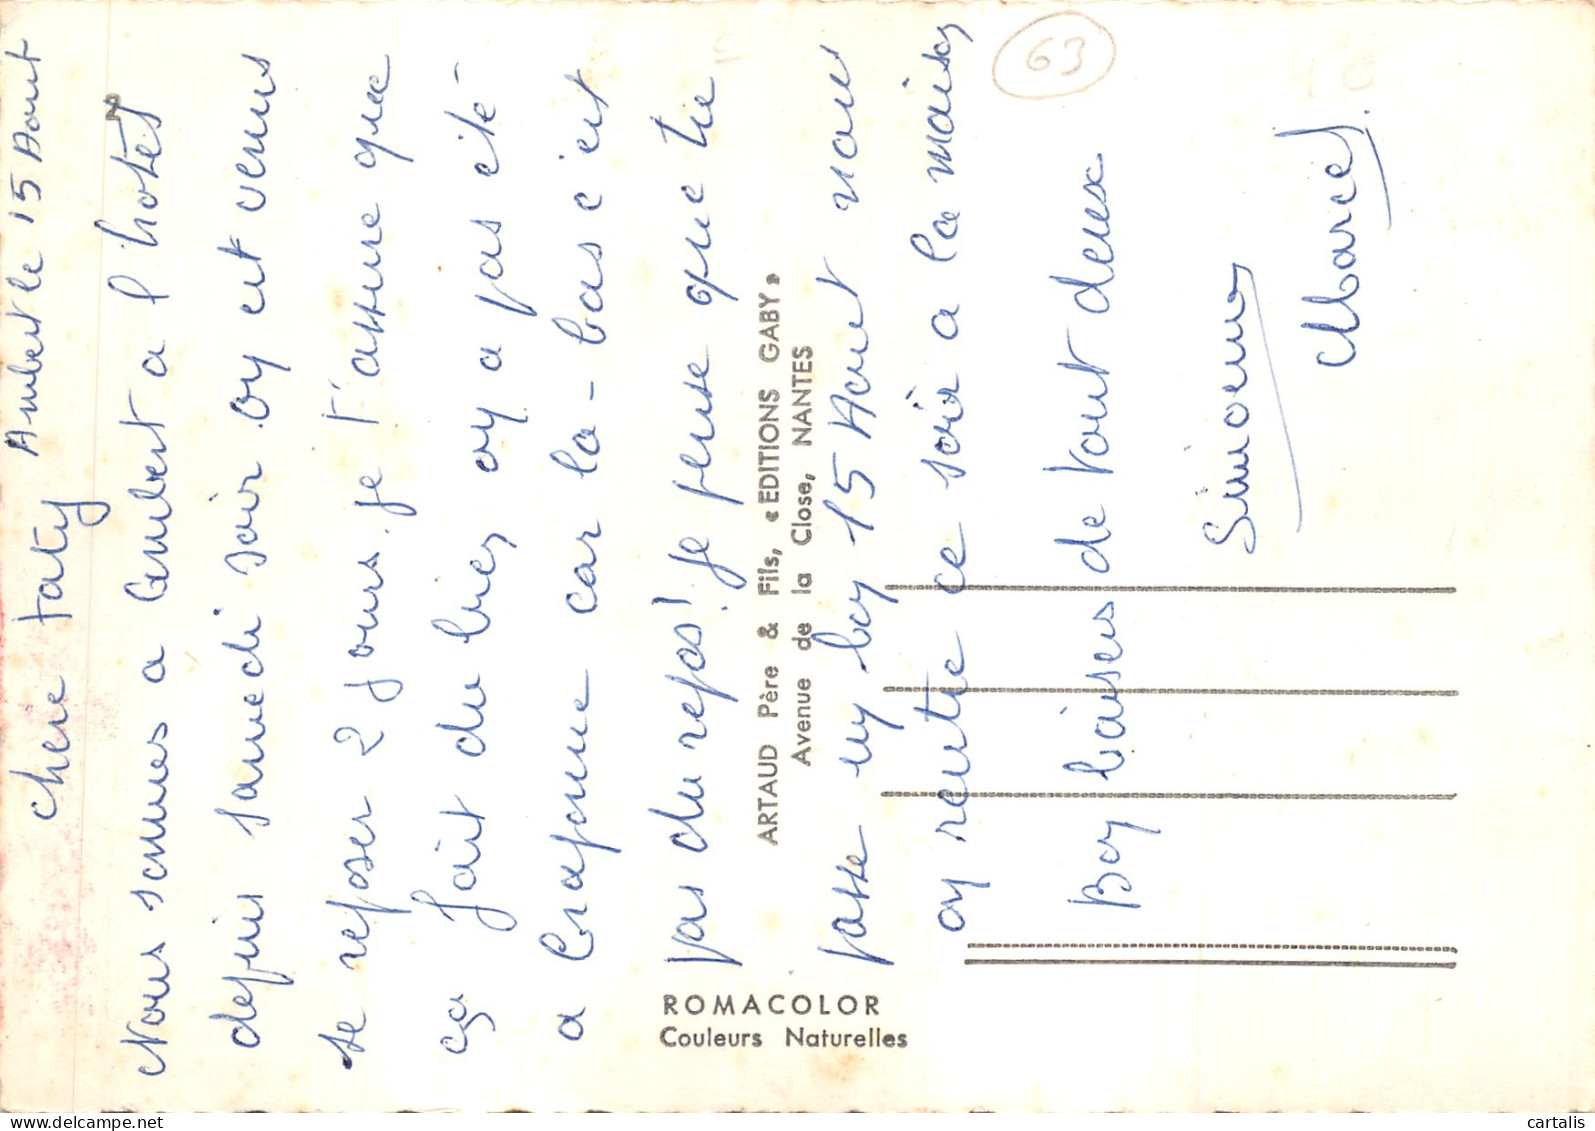 Ambert le 15 Aout
chere taty
Nous sommes a Ambert a l hotel
depuis samedi soir on est venus
se reposer 2 jours. je t'assure que
ça fait du bien, on a pas été
a Craponne car la-bas c'est
pas du repos! je pense que tu
passe un bon 15 Aout nous
on rentre ce soir a la maison
Bon baisers de tout deux
Simone
Marcel.
63
ARTAUD Père & Fils, «EDITIONS GABY»
Avenue de la Close, NANTES
ROMACOLOR
Couleurs Naturelles
cartalis